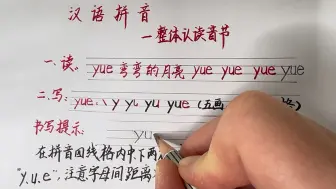 汉语拼音
一整体认读音节
一.读。yue 弯弯的月亮 yue yue yue yue
二.写:yue 丶 y y yu yue (五画
书写提示: yu
在拼音四线格内中下两
"y.u.e",注意字母间距离